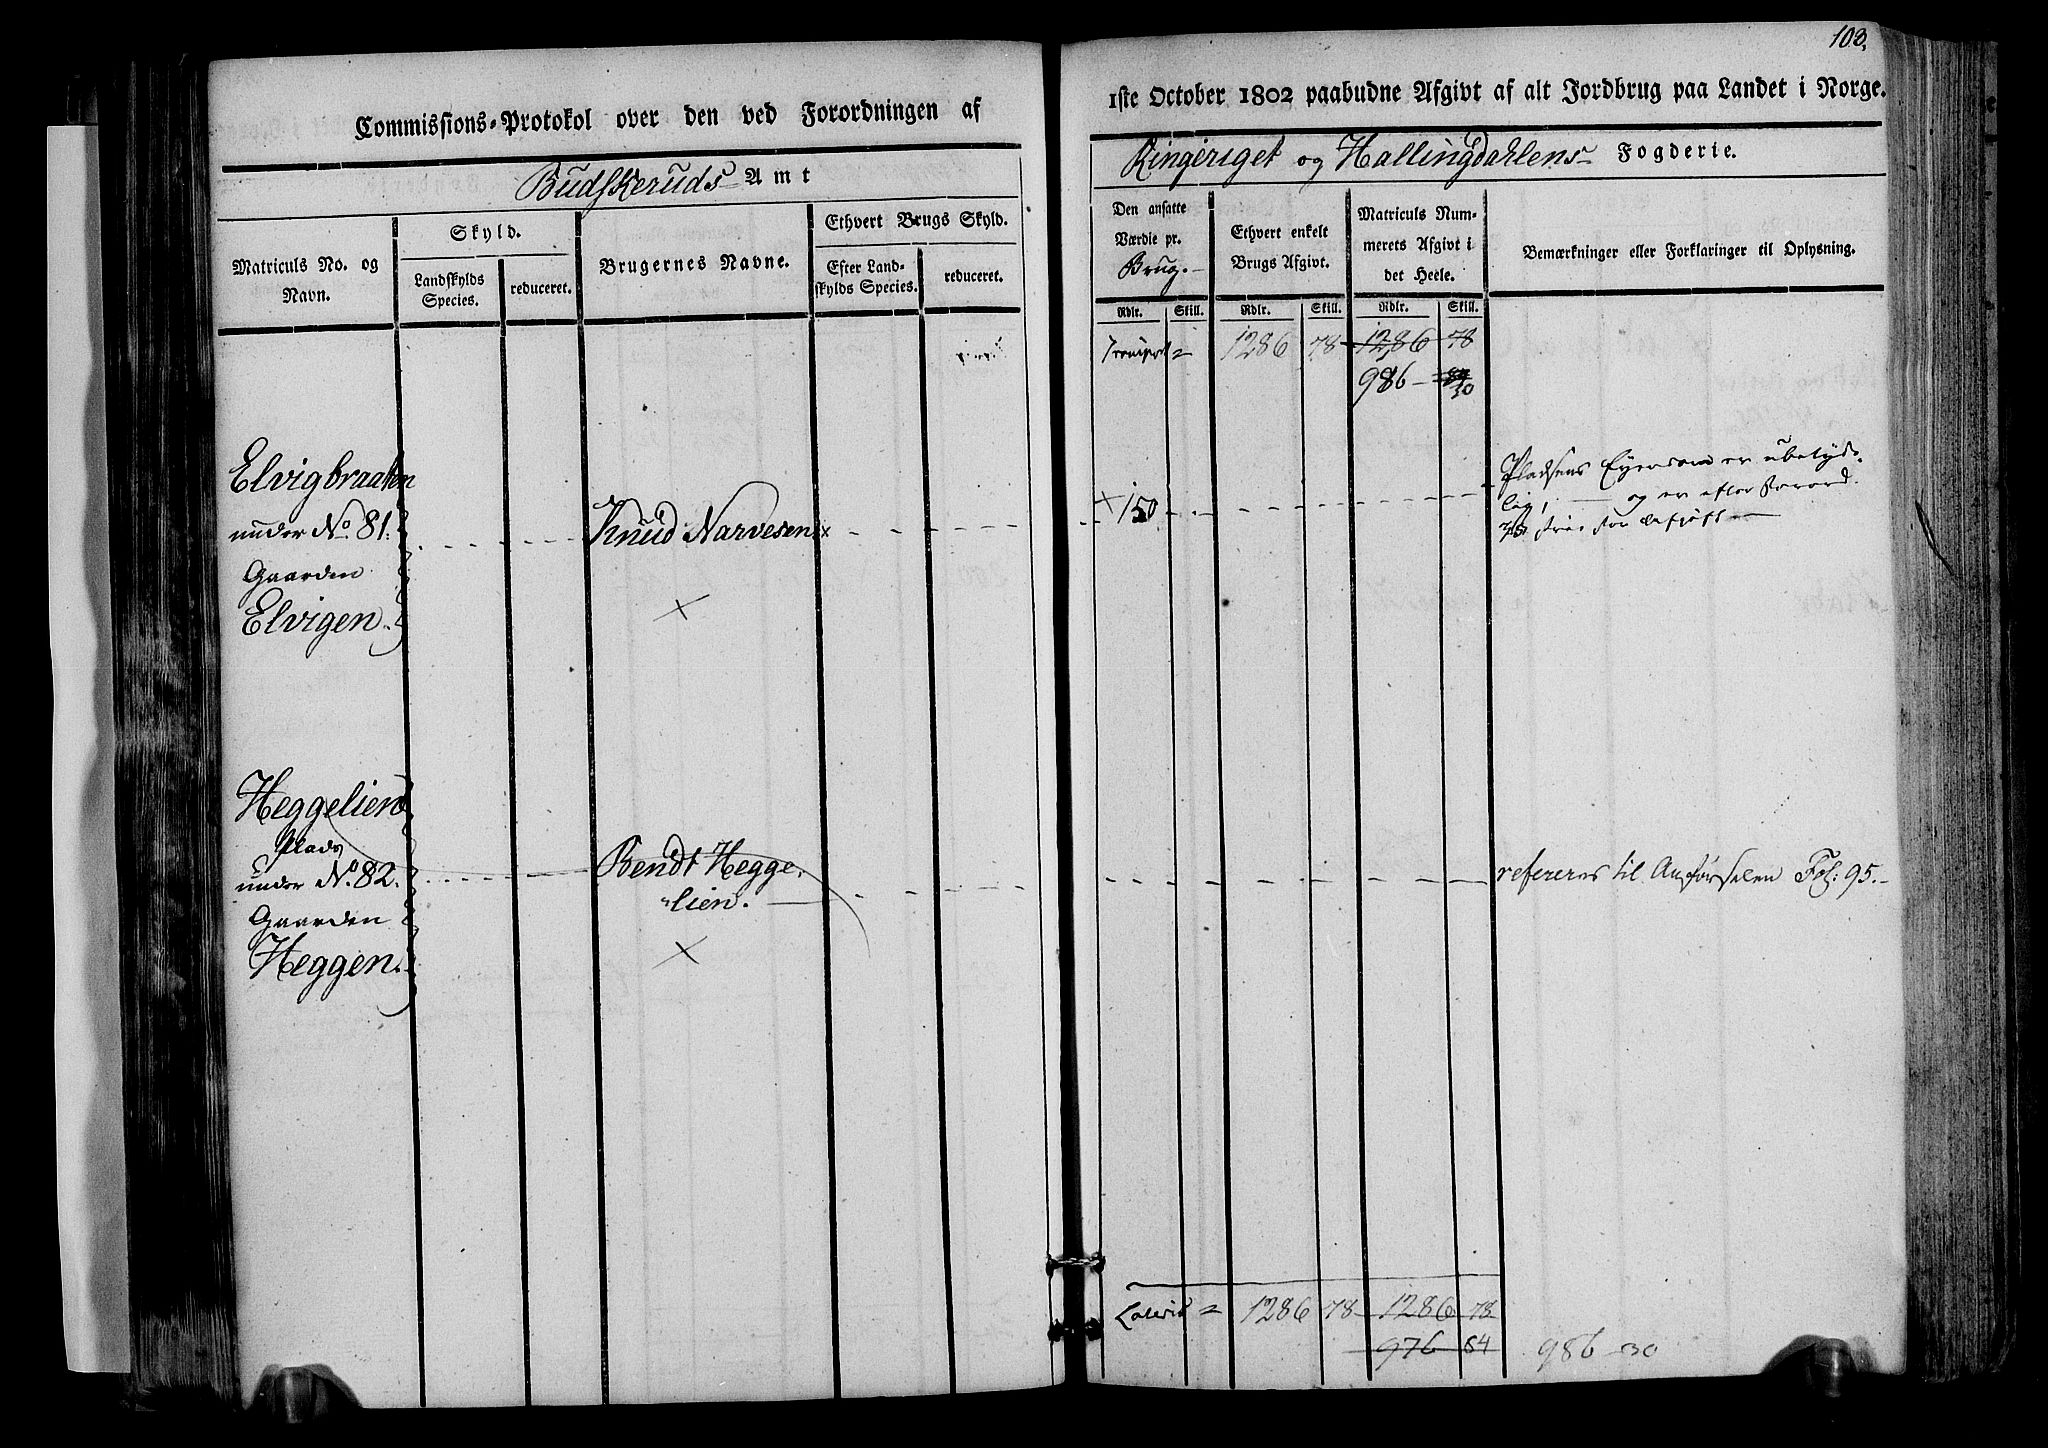 Commissions-Protokol over den ved Forordningen af
Budskeruds Amt
Matriculs No. og Navn.
Skyld.
Landskylds Species.
reduceret.
Brugernes Navne.
Ethvert Brugs Skyld.
Efter Landskylds Species.
reduceret.
Elvigbraaten
under No. 81.
Gaarden
Elvigen.
Knud Narvesen
×
Heggelien
Plads
under No. 82.
Gaarden
Heggen.
Bendt Hegge-
lien.
×
103.
1ste October 1802 paabudne Afgivt af alt Jordbrug paa Landet i Norge.
Ringeriget og Hallingdahlens Fogderie.
Den ansatte Værdie pr. Brug.
Ethvert enkelt Brugs Afgivt.
Matriculs Nummerets Afgivt i det Heele.
Bemærkninger eller Forklaringer til Oplysning.
Rdlr. Skill. Rdlr. Skill. Rdlr. Skill.
Transport = 1286 78 1286 78
986 - 30
× 150
Pladsens Eyendom er ubetyde-
lig, og er efter Forord.
frie for Afgift
refereres til Anførselen Fol: 95.
Lateris = 1286 78 1286 78
976 64 986 30